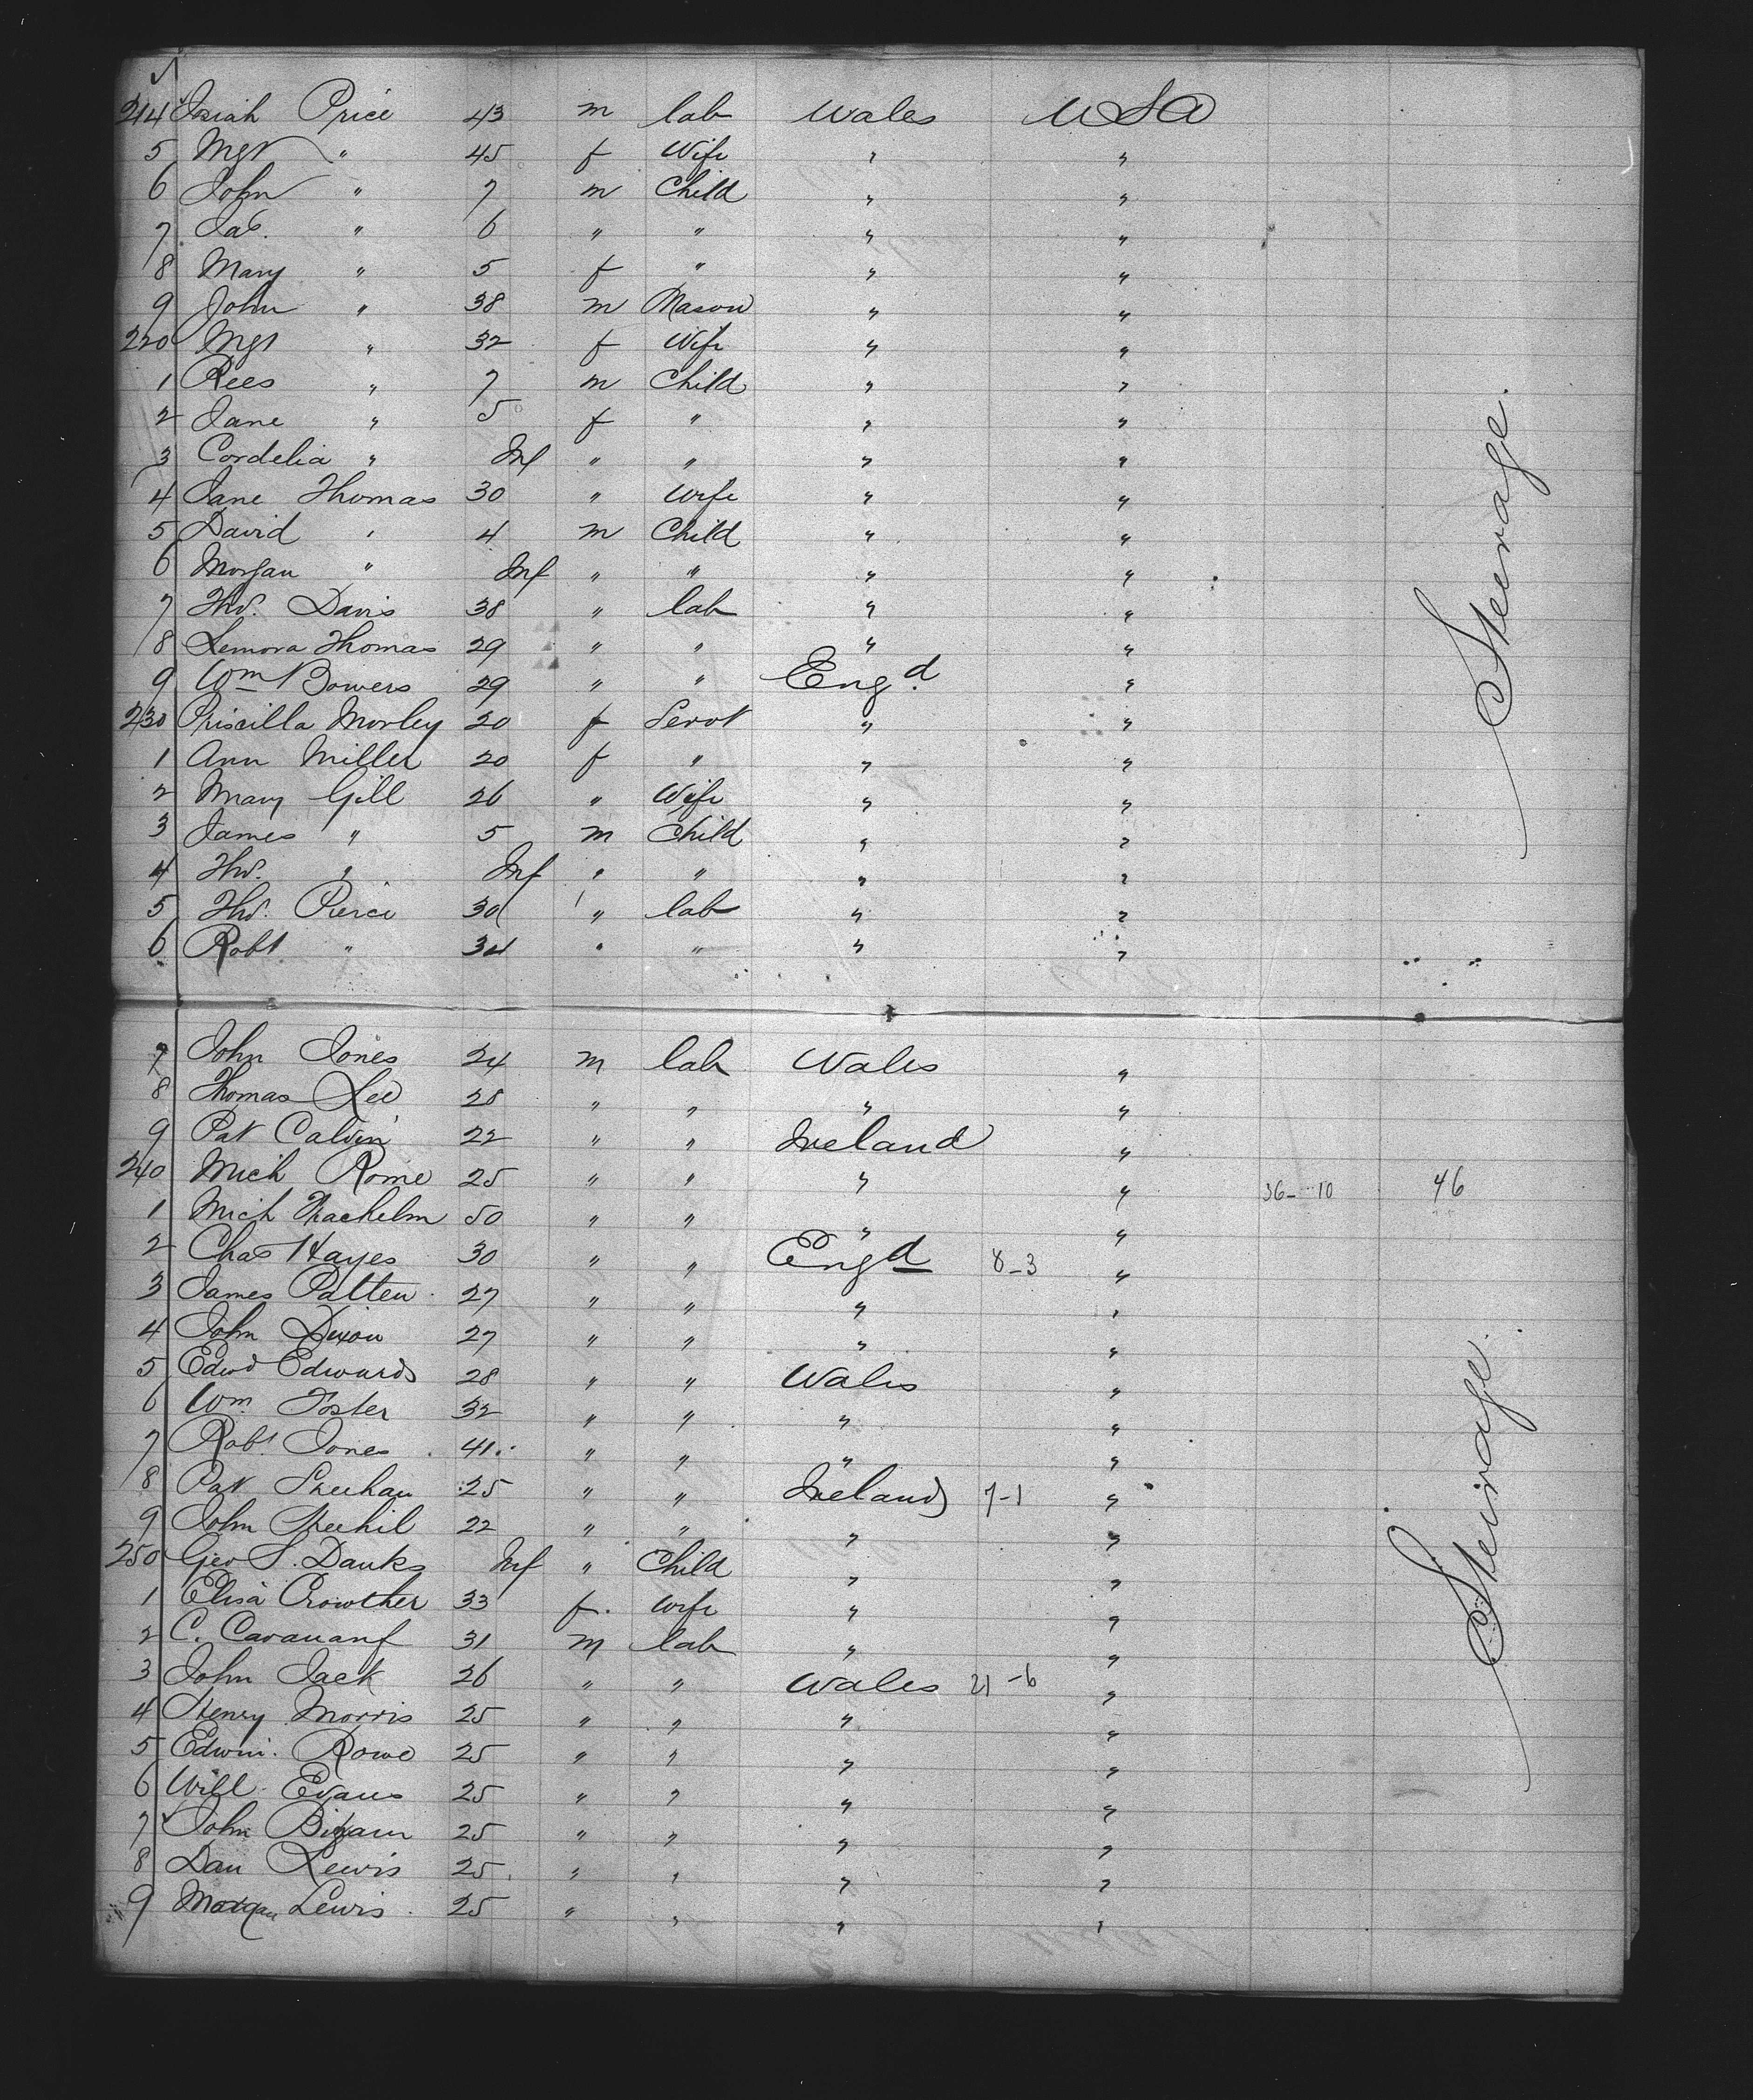 214 Isiah Price 43 m lab Wales USA
5 Mgt " 45 f Wife " "
6 John " 7 m Child " "
7 Jas. " 6 " " " "
8 Mary " 5 f " " "
9 John " 38 m Mason " "
220 Mgt " 32 f Wife " "
1 Rees " 7 m Child " "
2 Jane " 5 f " " "
3 Cordelia " Inf " " " "
4 Jane Thomas 30 " Wife " "
5 David " 4 m Child " "
6 Morgan " Inf " " " "
7 Tho. Davis 38 " lab " "
8 Lemora Thomas 29 " " " "
9 Wm Bowers 29 " " Engd "
230 Priscilla Morley 20 f Servt " "
1 Ann Miller 20 f " " "
2 Mary Gill 26 " Wife " "
3 James " 5 m Child " "
4 Tho. " Inf " " " "
5 Tho. Pierce 30 " lab " "
6 Robt " 34 " " " "
Steerage.
7 John Jones 24 m lab Wales "
8 Thomas Lee 28 " " " "
9 Pat Calvin 22 " " Ireland "
240 Mich Rome 25 " " " " 36-10 46
1 Mich 50 " " " "
2 Chas Hayes 30 " " Engd 8-3 "
3 James Patten 27 " " " "
4 John Dixon 27 " " " "
5 Edwd Edwards 28 " " Wales "
6 Wm. Foster 32 " " " "
7 Robt Jones 41 " " " "
8 Pat Sheehan 25 " " Ireland 7-1 "
9 John 22 " " " "
250 Geo S. Danks Inf " Child " "
1 Elisa Crowther 33 f. Wife " "
2 C. Cavananf 31 m lab " "
3 John Jack 26 " " Wales 21-6 "
4 Henry Morris 25 " " " "
5 Edwin. Rowe 25 " " " "
6 Will Evans 25 " " " "
7 John 25 " " " "
8 Dan Lewis 25 " " " "
9 Morgan Lewis 25 " " " "
Steerage.